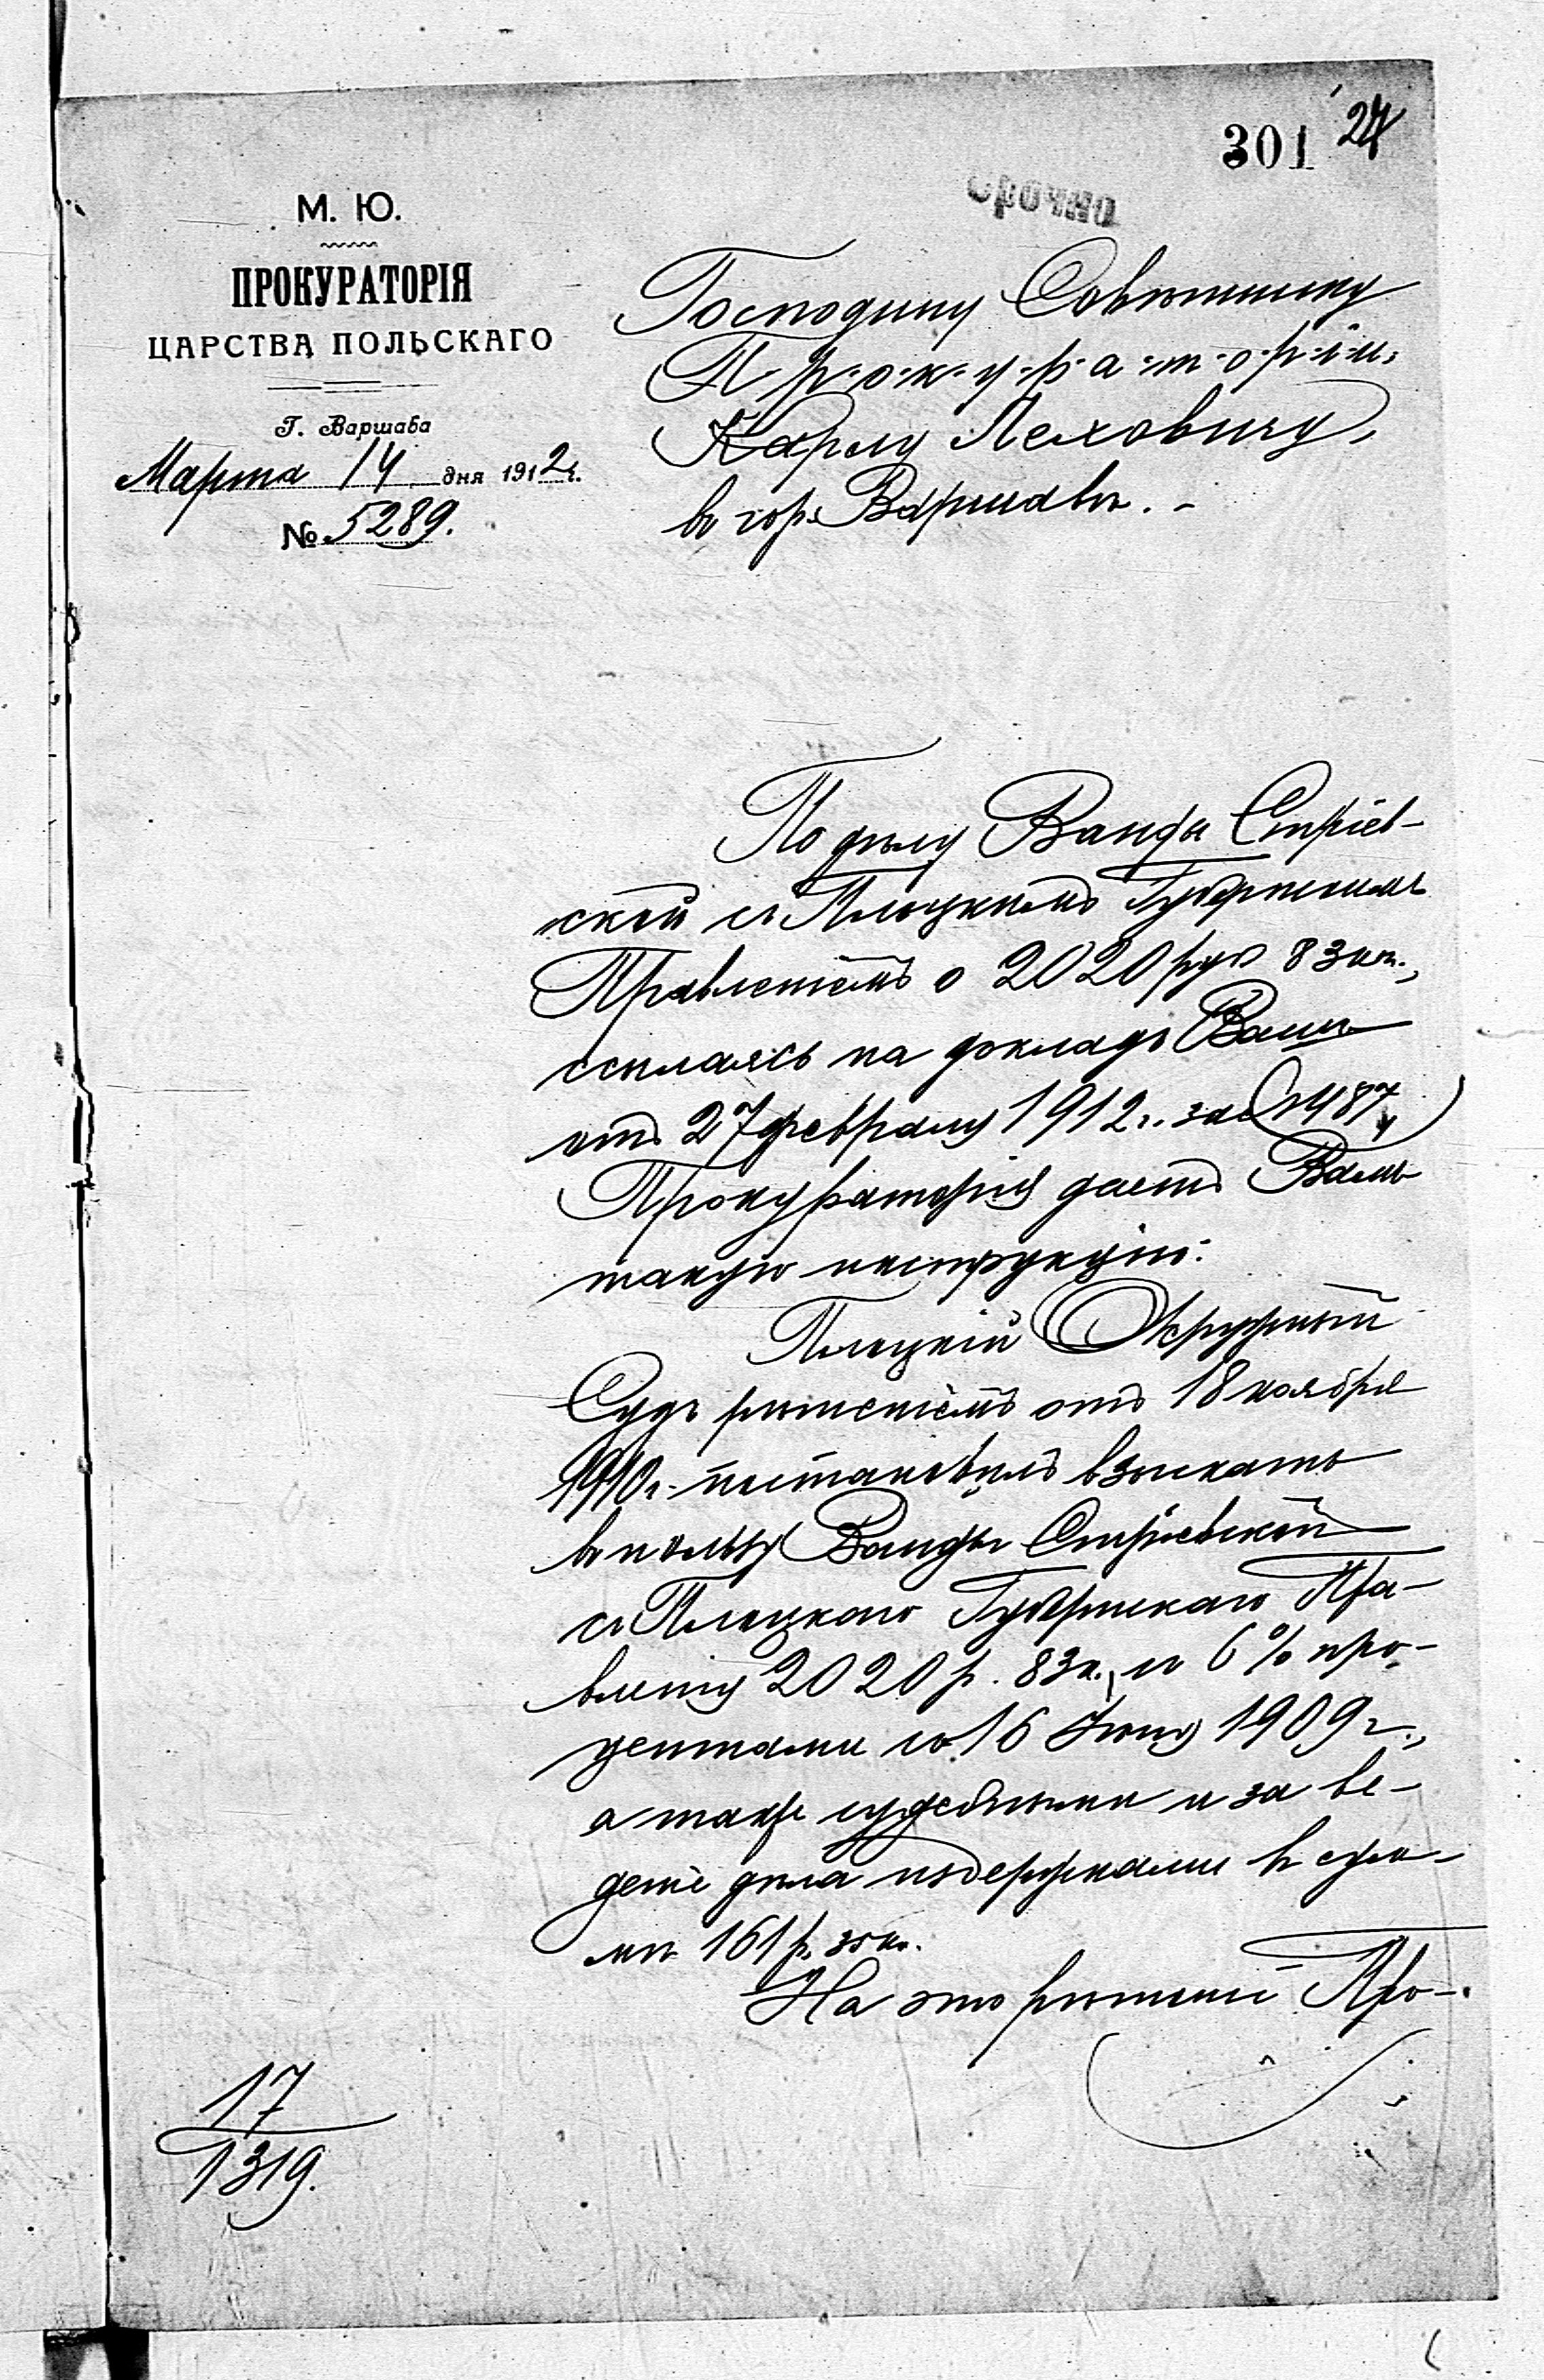 301 24
срочно
М. Ю.
ПРОКУРАТОРІЯ
ЦАРСТВА ПОЛЬСКАГО
Г. Варшава
Марта 14 дня 1912 г.
№ 5289.
Господину Совѣтнику
П-р-о-к-у-р-а-т-о-р-і-и,
Карлу Леховичу,
въ гор. Варшавѣ. -
По дѣлу Ванды Стріев-
ской съ Плоцкимъ Губернскимъ
Правленіемъ о 2020 руб 83 коп.,
ссылаясь на докладъ Вашъ
отъ 27 февраля 1912 г. за № 487,
Прокураторія даетъ Вамъ
такую инструкцію:
Плоцкій Окружный
Судъ рѣшеніемъ отъ 18 ноября
1910 г. постановилъ взыскать
въ пользу Ванды Стріевской
съ Плоцкаго Губернскаго Пра-
вленія 2020 р. 83 к., съ 6% про-
центами со 16 Іюня 1909 г.,
а также судебными и за ве-
деніе дѣла издержками въ сум-
мѣ 161 р. 35 к.
На это рѣшеніе Про-
17
1319.